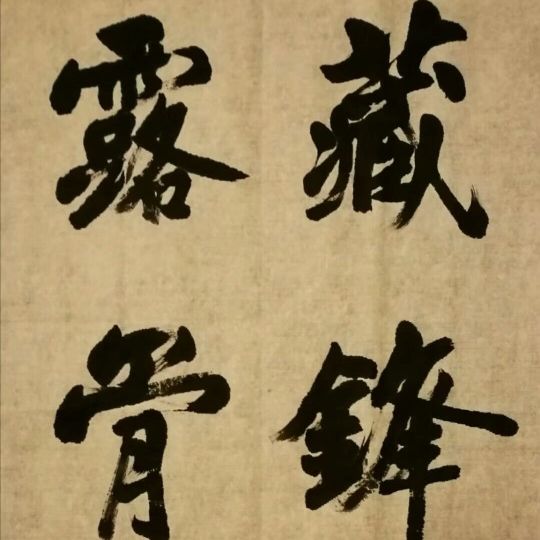 藏鋒
露骨